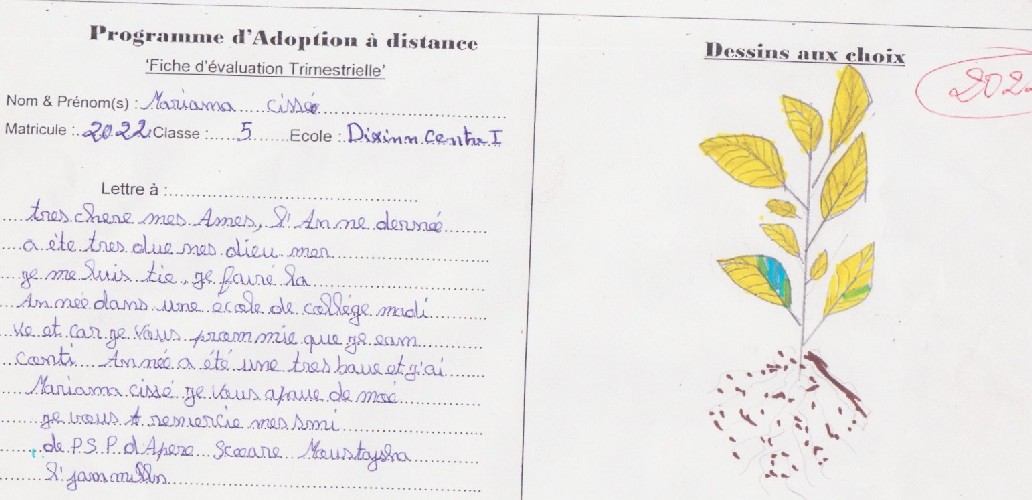 Programme d'Adoption à distance
'Fiche d'évaluation Trimestrielle'
Nom & Prénom(s) : Mariama cissé
Matricule : 2022 Classe : 5 Ecole : Dixinn Centre I
Lettre à :
tres chere mes Ames, l'Anne dernée
a éte tres due mes dieu mer
je me suis tie, je fairé la
Année dans une école de collége madi
ve et car je vous prommie que je eam
conti Année a été une tres baue et j'ai
Mariama cissé je vous apaue de moé
je vous remercie mes smi
de P.S.P. d'Apere Scocare Moustapha
l'jammilln
Dessins aux choix
202